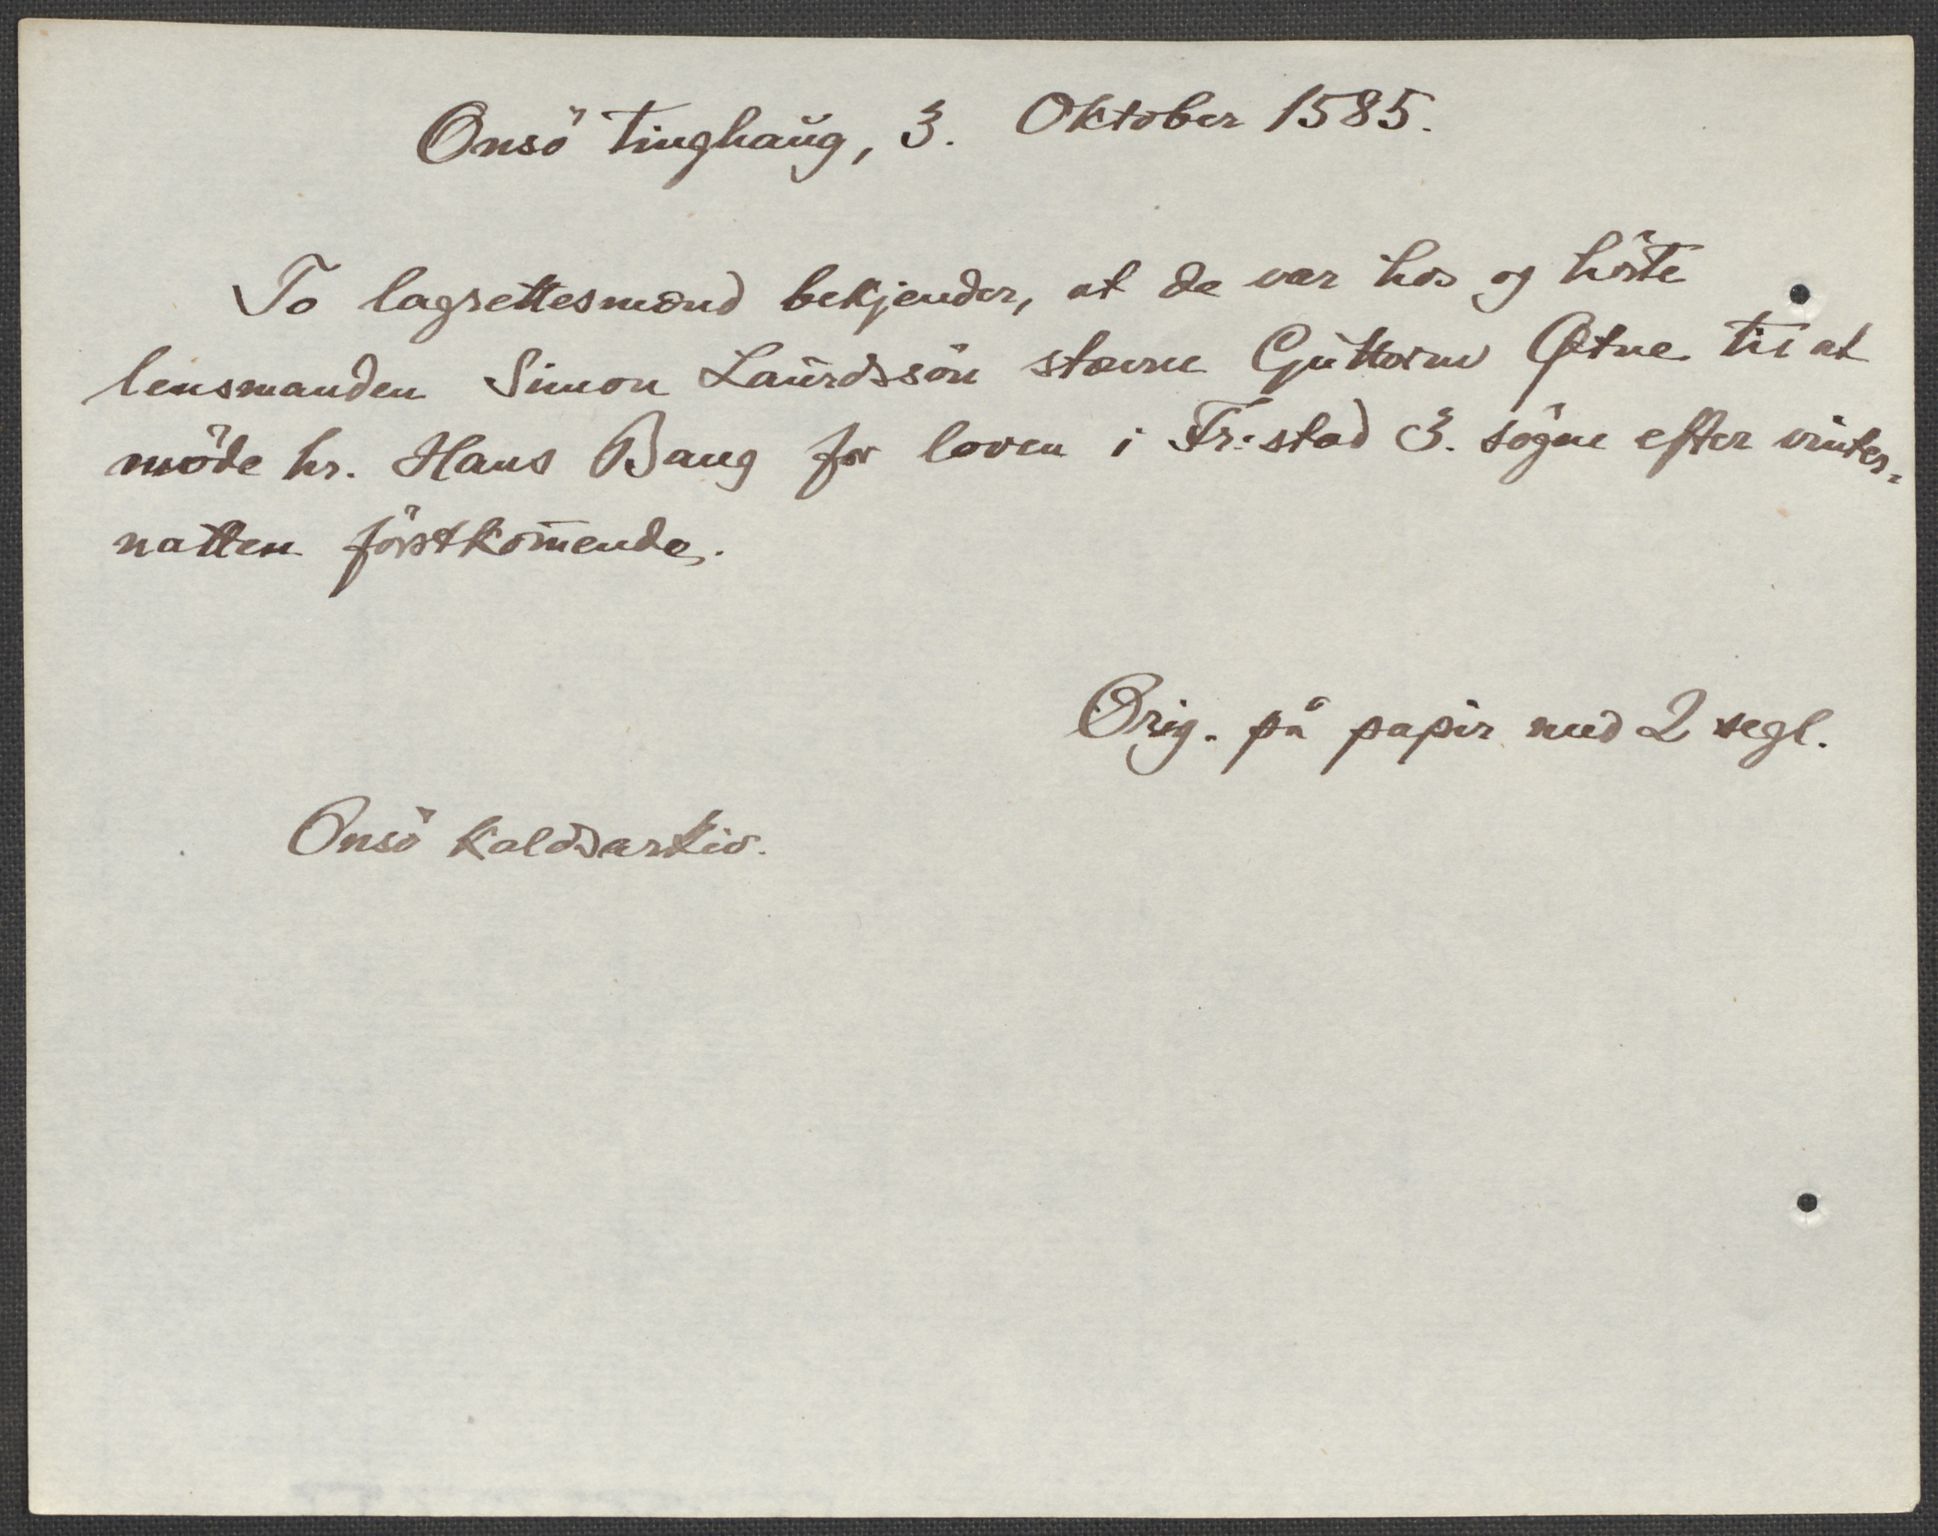 Onsö tinghaug, 3. Oktober 1585.
To lagrettesmænd bekjender, at de var hos og hörte
lensmanden Simon Laurdssön stævne Guttorm Ætne til at
möde hr. Hans Baug for loven i Fr:stad 3. sögne efter vinter-
natten förstkom̅ende.
Orig. på papir med 2 segl.
Onsö kaldsarkiv.